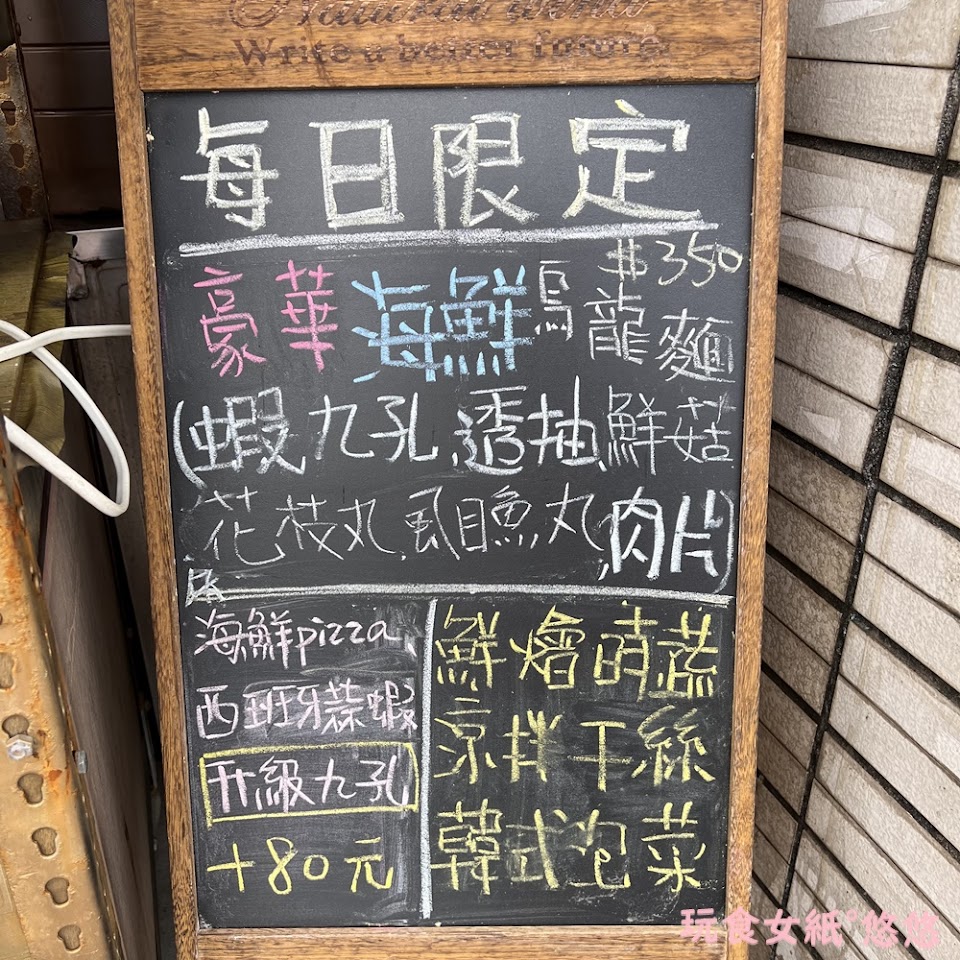 Write a better future.
每日限定
$350
豪華海鮮烏龍麵
(蝦.九孔.透抽.鮮菇
花枝丸.虱目魚丸.肉片)
海鮮pizza
西班牙蒜蝦
升級九孔
+80元
鮮燴時蔬
涼拌干絲
韓式泡菜
玩食女紙°悠悠